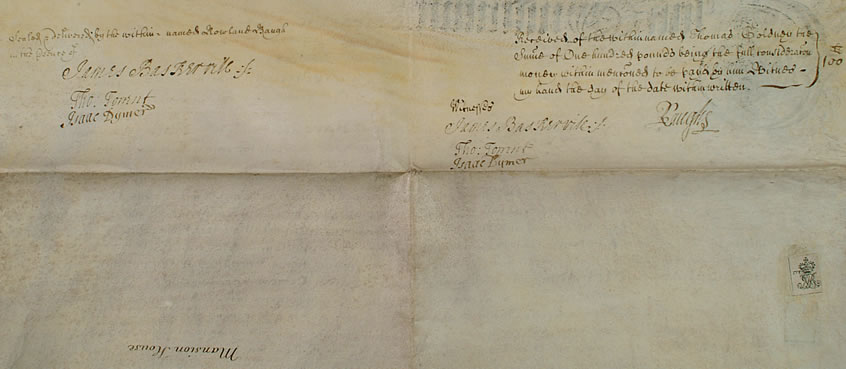 Sealed & delivered by the within named Rowland Baugh
in the presence of
James Baskervile
Tho:
Isaac Rymer
Received of the within named Thomas the
Sume of One hundred pounds being the full consideration
money within mentioned to be paid by him Witnes
my hand the day of the date within written
100
RBaugh
Witnesses
James Baskervile
Tho:
Isaac Rymer
Mansion House